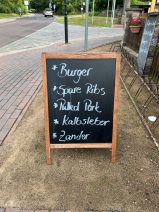 * Burger
* Spare Ribs
* Pulled Pork
* Kalbsleber
* Zander